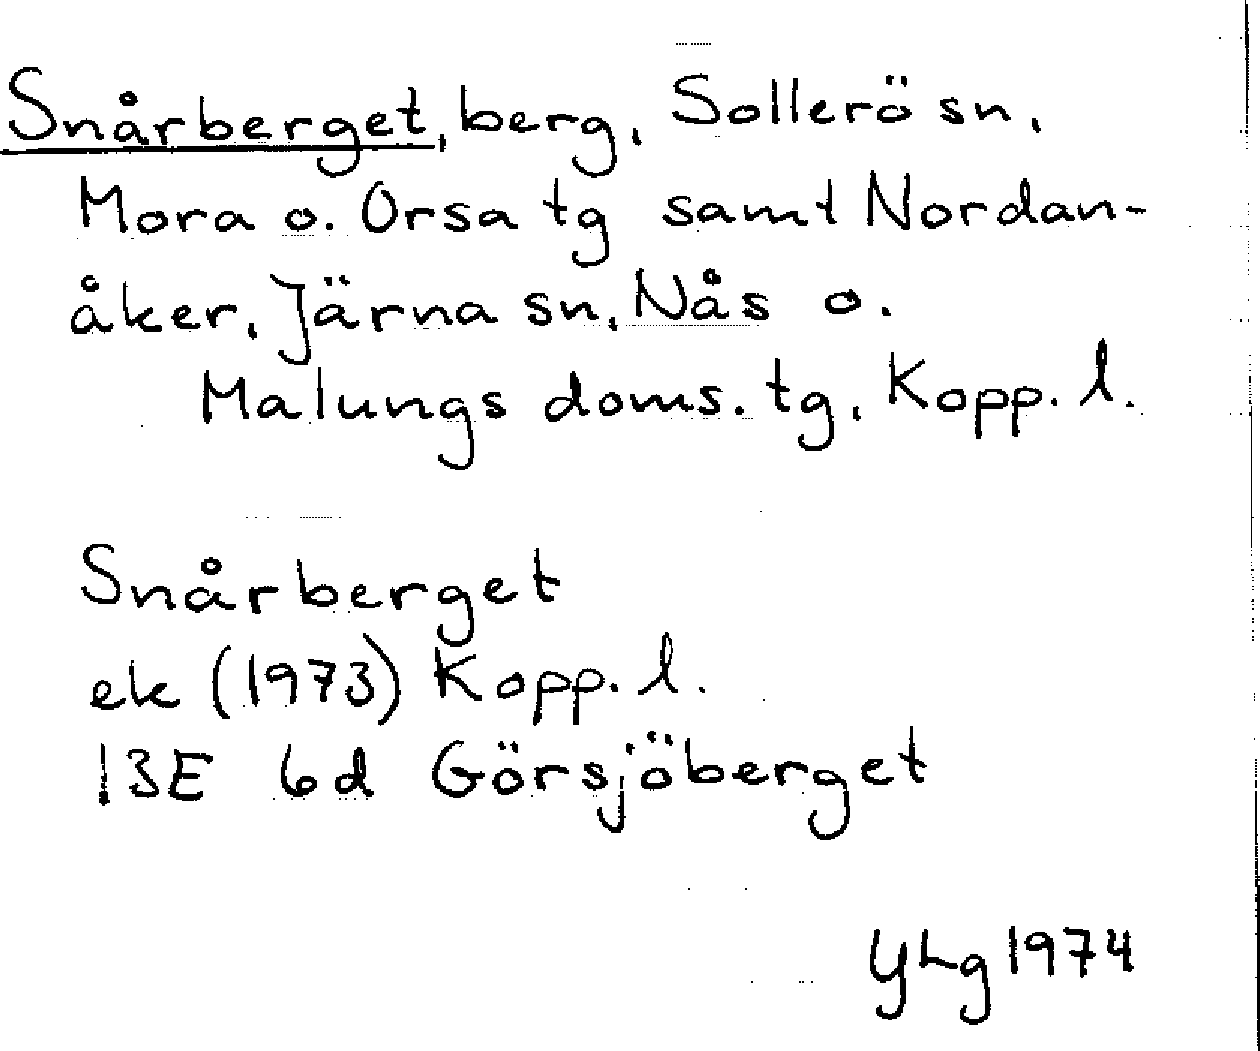 Snårberget, berg, Sollerö sn,
Mora o. Orsa tg samt Nordan-
åker, Järna sn, Nås o.
Malungs doms. tg, Kopp. l.
Snårberget
ek (1973) Kopp. l.
13E 6d Görsjöberget
YLg 1974